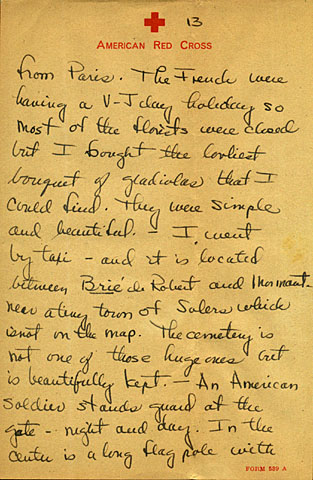 13
AMERICAN RED CROSS
from Paris. The French were
having a V-J day holiday so
most of the florists were closed
but I bought the lovliest
bouquet of gladiolas that I
could find. They were simple
and beautiful. - I went
by taxi - and it is located
between Brie de Robert and Mormant -
near a tiny town of Solers which
is not on the map. The cemetery is
not one of those huge ones but
is beautifully kept. - An American
soldier stands guard at the
gate - night and day. In the
center is a long flag pole with
FORM 539 A